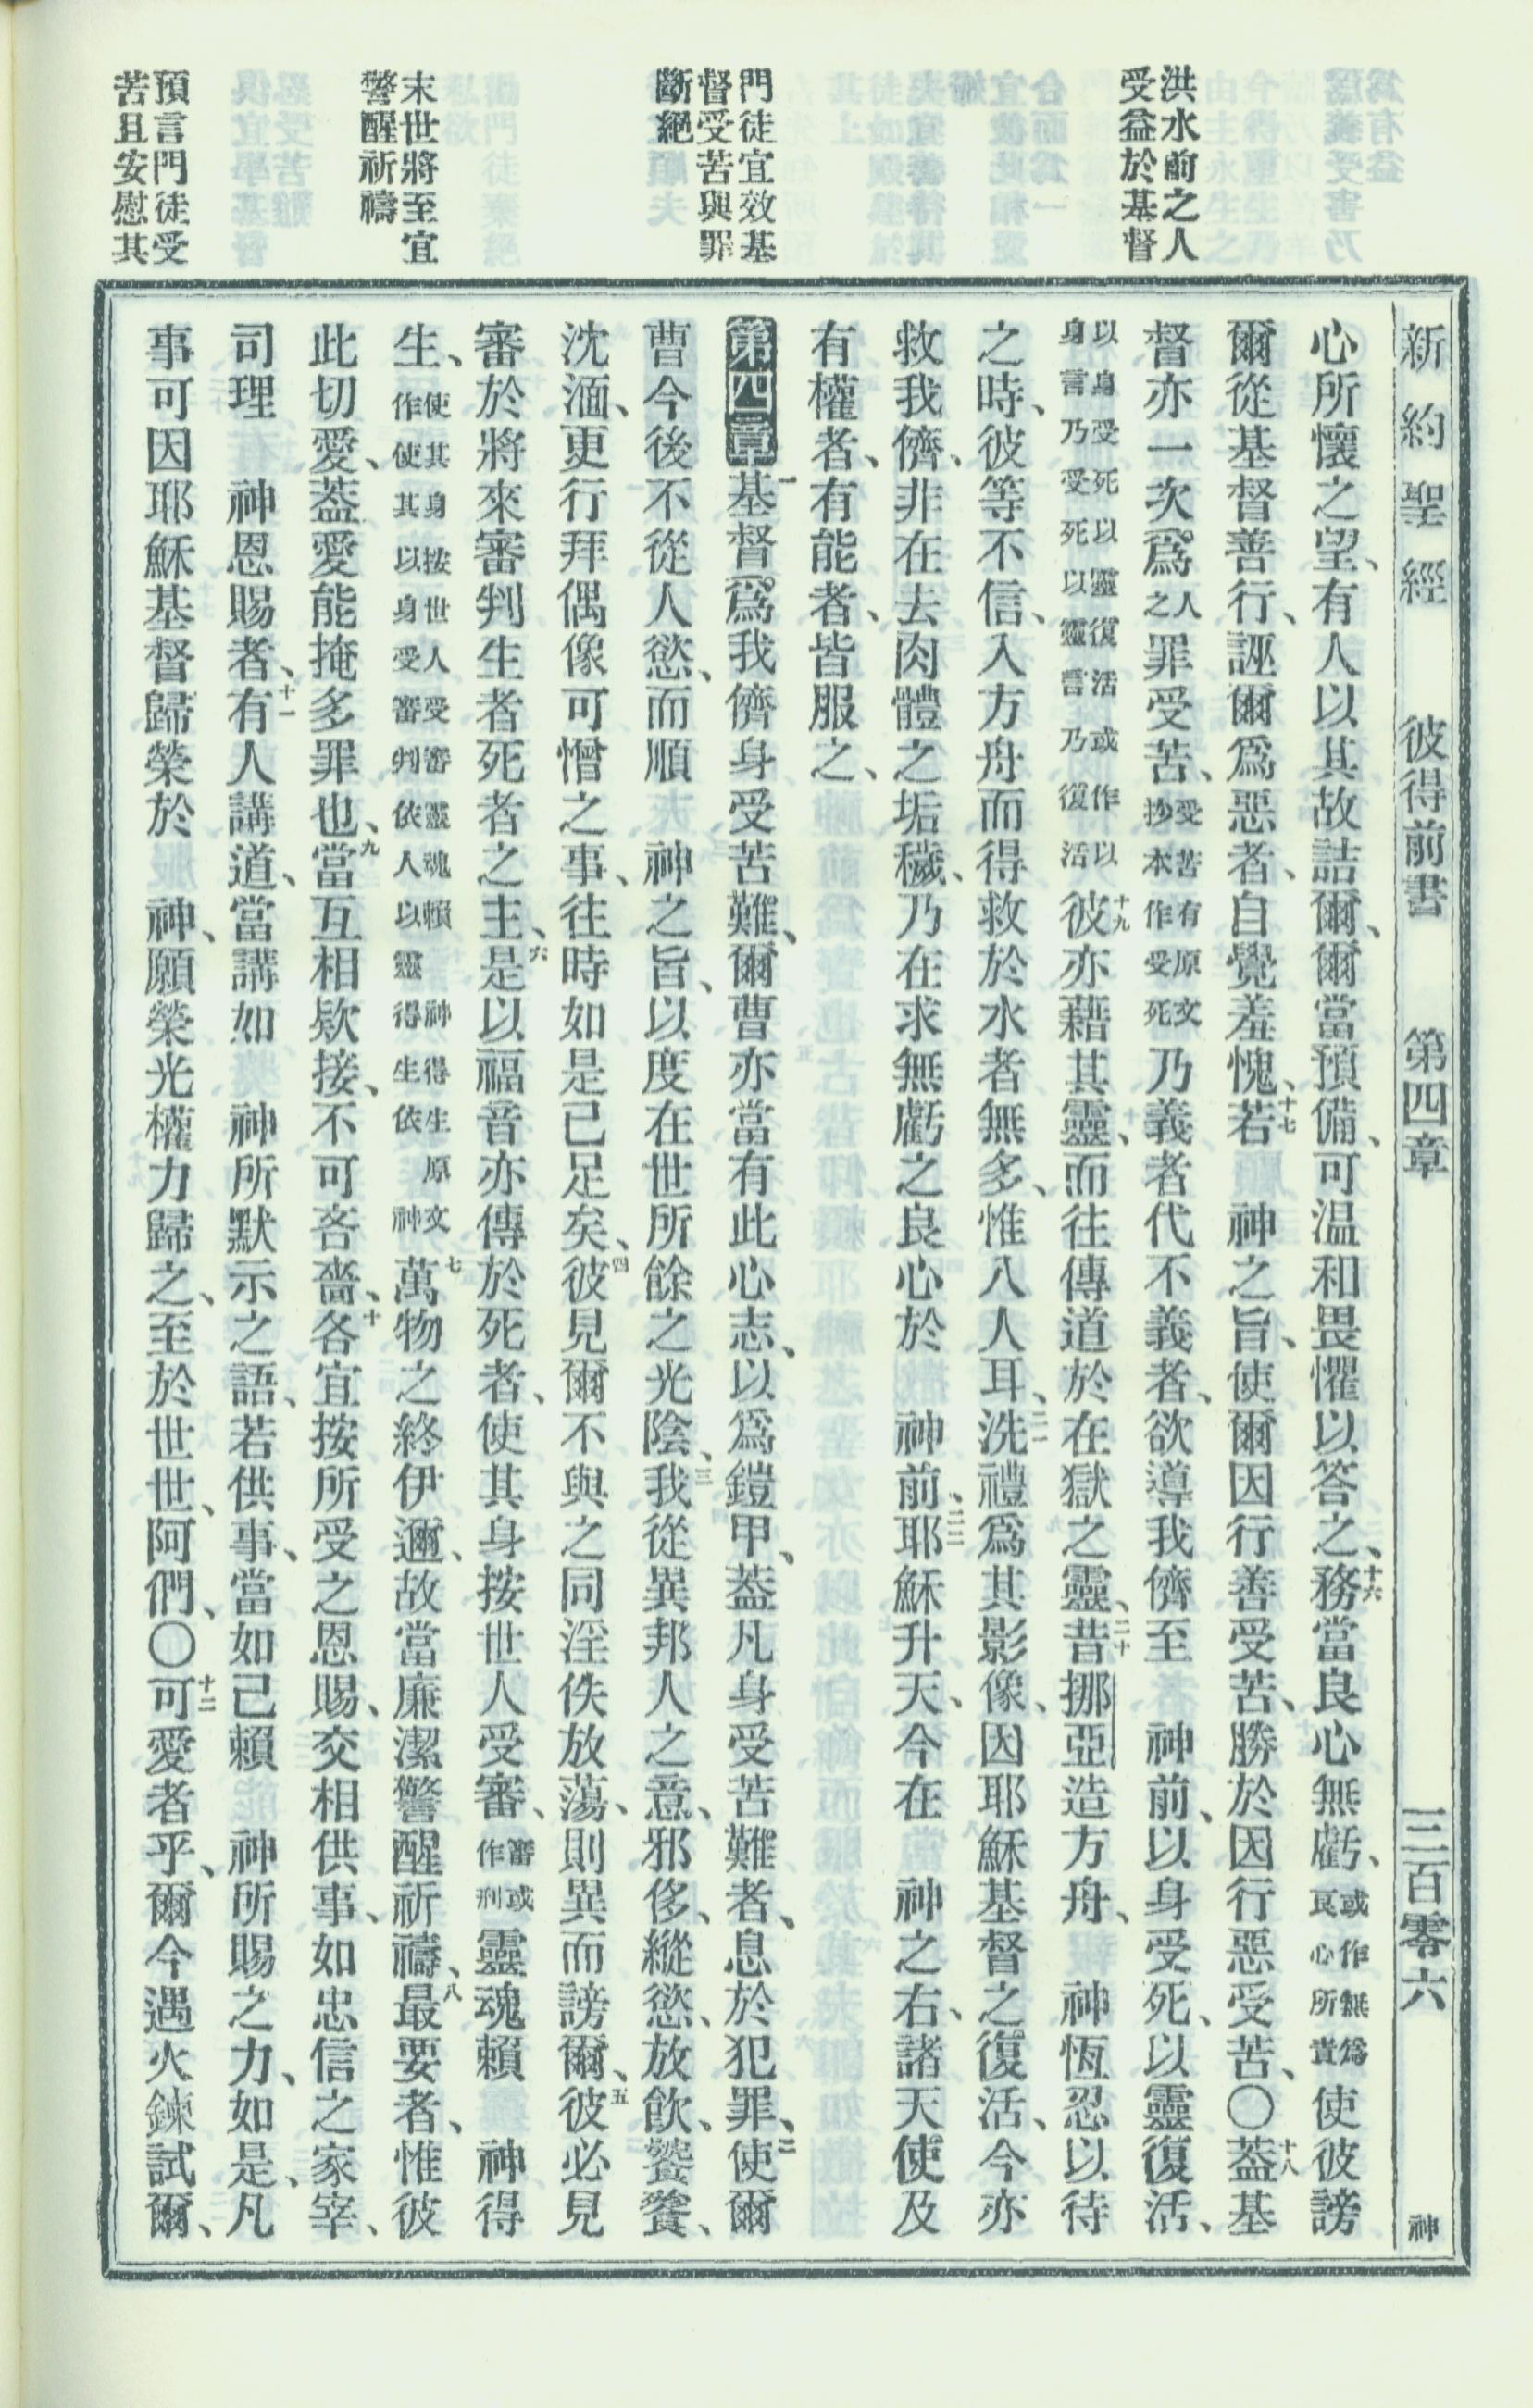 新約聖經　彼得前書　第四章　三百零六　神
洪水前之人
受益於基督
門徒宜效基
督受苦與罪
斷絕
末世將至宜
警醒祈禱
預言門徒受
苦且安慰其
心所懷之望、有人以其故詰爾、爾當預備、可温和畏懼以答之、十六務當良心無虧、或作無爲良心所責使彼謗
爾從基督善行、誣爾爲惡者、自覺羞愧、十七若　神之旨、使爾因行善受苦、勝於因行惡受苦、〇十八蓋基
督亦一次爲人之罪受苦、受苦有原文抄本作受死乃義者代不義者、欲導我儕至　神前、以身受死、以靈復活、
以身受死以靈復活或作以身言乃受死以靈言乃復活十九彼亦藉其靈、而往傳道於在獄之靈、二十昔挪亞造方舟、　神恆忍以待
之時、彼等不信、入方舟而得救於水者無多、惟八人耳、二一洗禮爲其影像、因耶穌基督之復活、今亦
救我儕、非在去肉體之垢穢、乃在求無虧之良心於　神前、二二耶穌升天、今在　神之右、諸天使及
有權者、有能者、皆服之、
第四章一基督爲我儕身受苦難、爾曹亦當有此心志、以爲鎧甲、蓋凡身受苦難者、息於犯罪、二使爾
曹今後不從人慾、而順　神之旨、以度在世所餘之光陰、三我從異邦人之意、邪侈、縱慾、放飲、饕餮、
沈湎、更行拜偶像可憎之事、往時如是已足矣、四彼見爾不與之同淫佚放蕩、則異而謗爾、五彼必見
審於將來審判生者死者之主、六是以福音亦傳於死者、使其身按世人受審、審或作刑靈魂賴　神得
生、使其身按世人受審靈魂賴神得生原文作使其以身受審判依人以靈得生依神七萬物之終伊邇、故當廉潔警醒祈禱、八最要者、惟彼
此切愛、蓋愛能掩多罪也、九當互相欵接、不可吝嗇、十各宜按所受之恩賜、交相供事、如忠信之家宰、
司理　神恩賜者、十一有人講道、當講如　神所默示之語、若供事、當如己賴　神所賜之力、如是、凡
事可因耶穌基督歸榮於　神、願榮光權力歸之、至於世世、阿們、〇十二可愛者乎、爾今遇火鍊試爾、